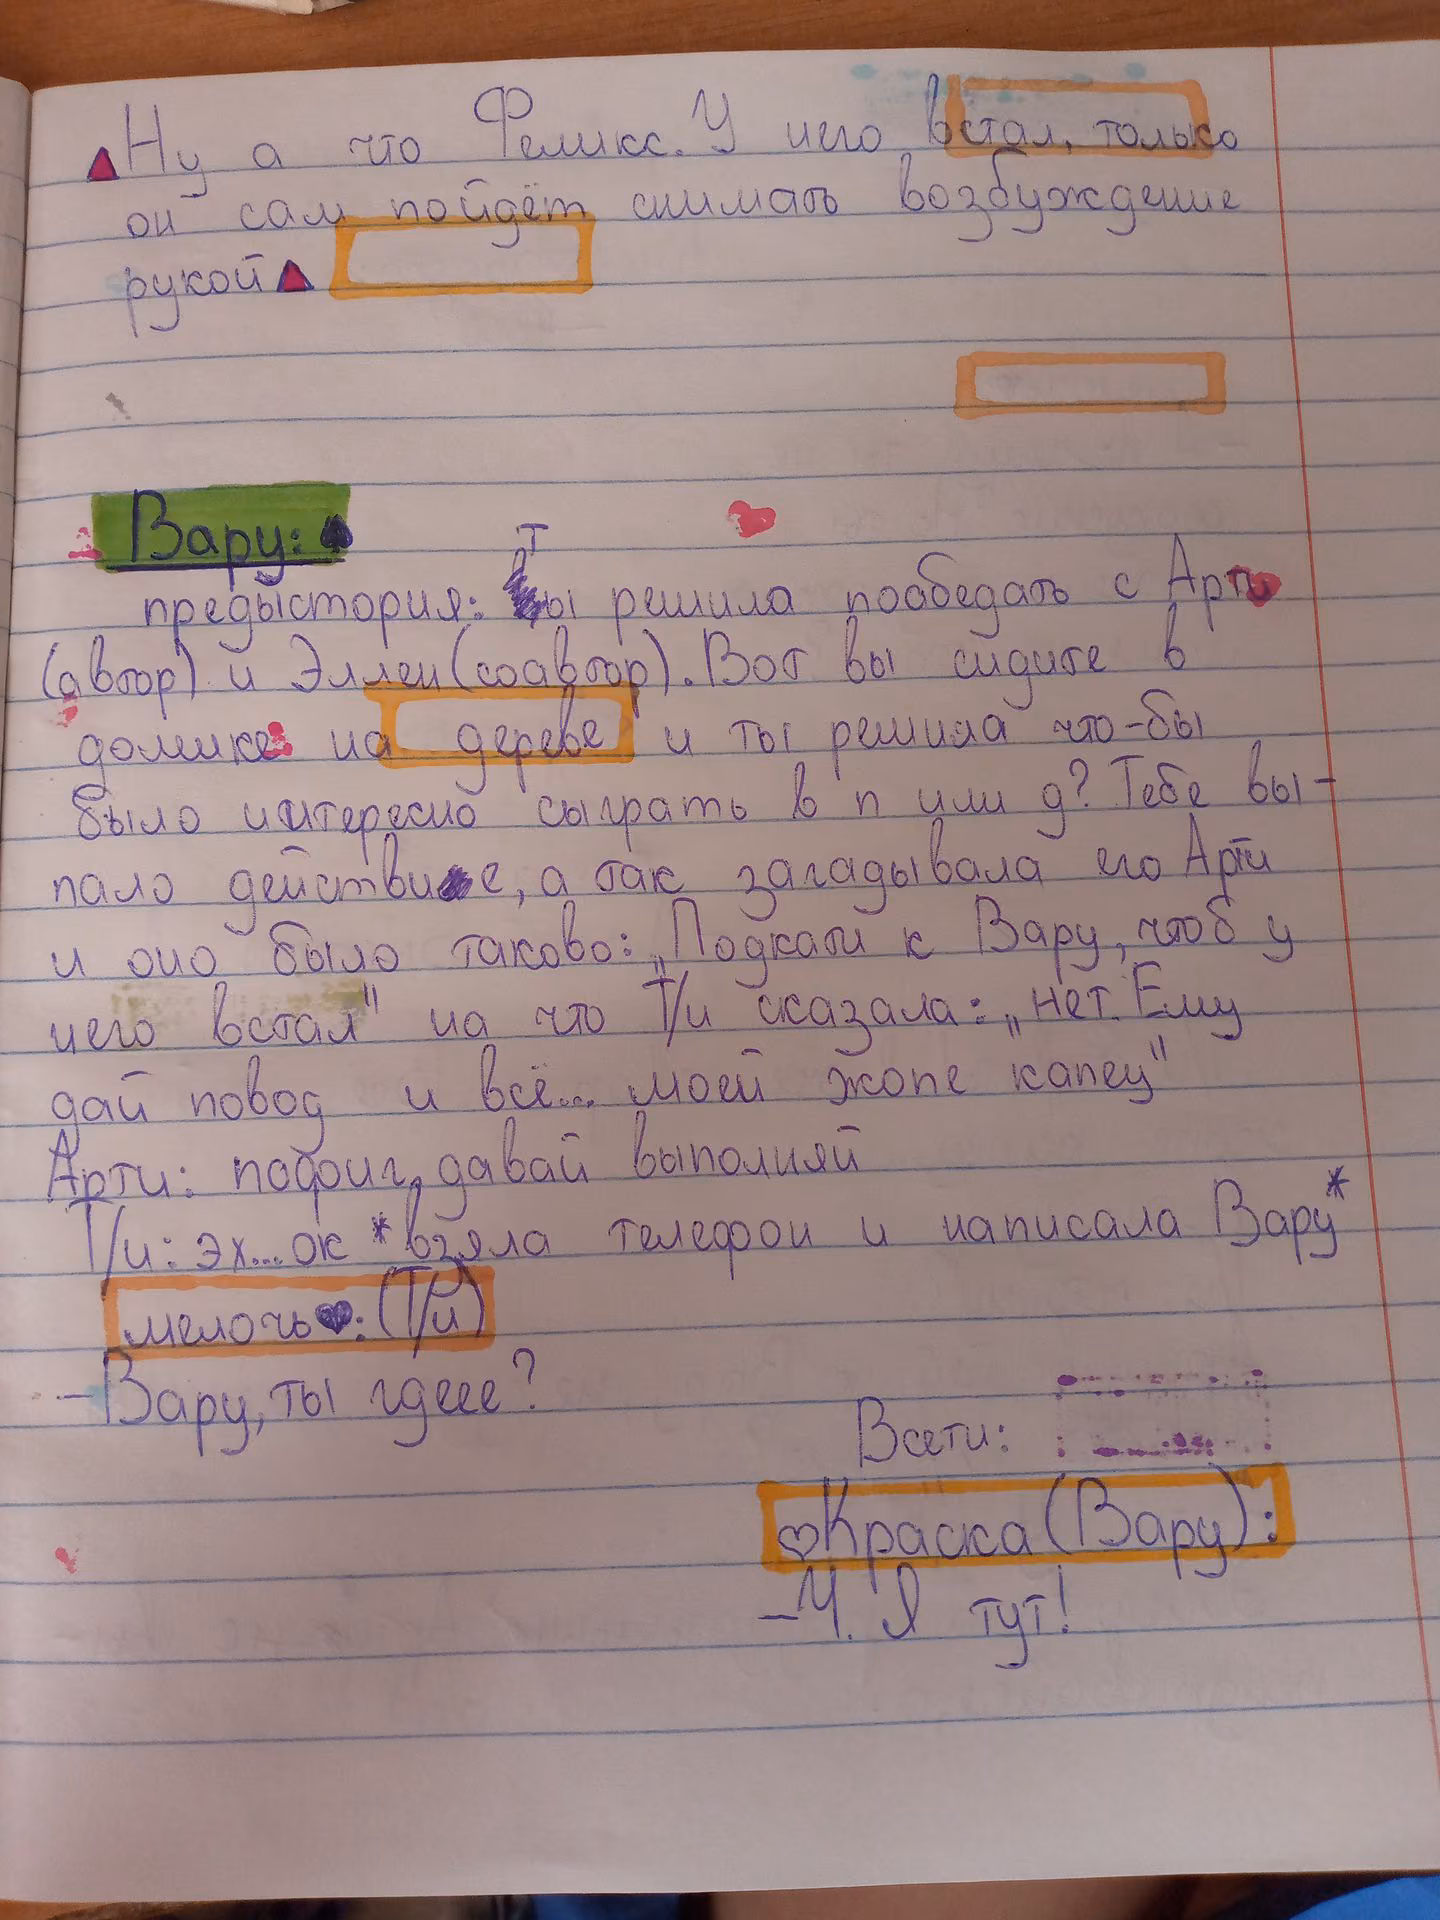 Ну а что Феликс. У него встал, только
он сам пойдёт снимать возбуждение
рукой
Вару:
предыстория: Ты решила пообедать с Арти
(автор) и Эллен (соавтор). Вот вы сидите в
домике на дереве и ты решила что-бы
было интересно сыграть в п или д? Тебе вы-
пало действие, а так загадывала его Арти
и оно было таково: „Подкати к Вару, чтоб у
него встал" на что Т/и сказала: „нет. Ему
дай повод и всё... моей жопе капец"
Арти: пофиг, давай выполняй
Т/и: эх... ок *взяла телефон и написала Вару*
мелочь: (Т/и)
-Вару, ты гдеее?
Всети:
Краска (Вару):
-Ч. Я тут!